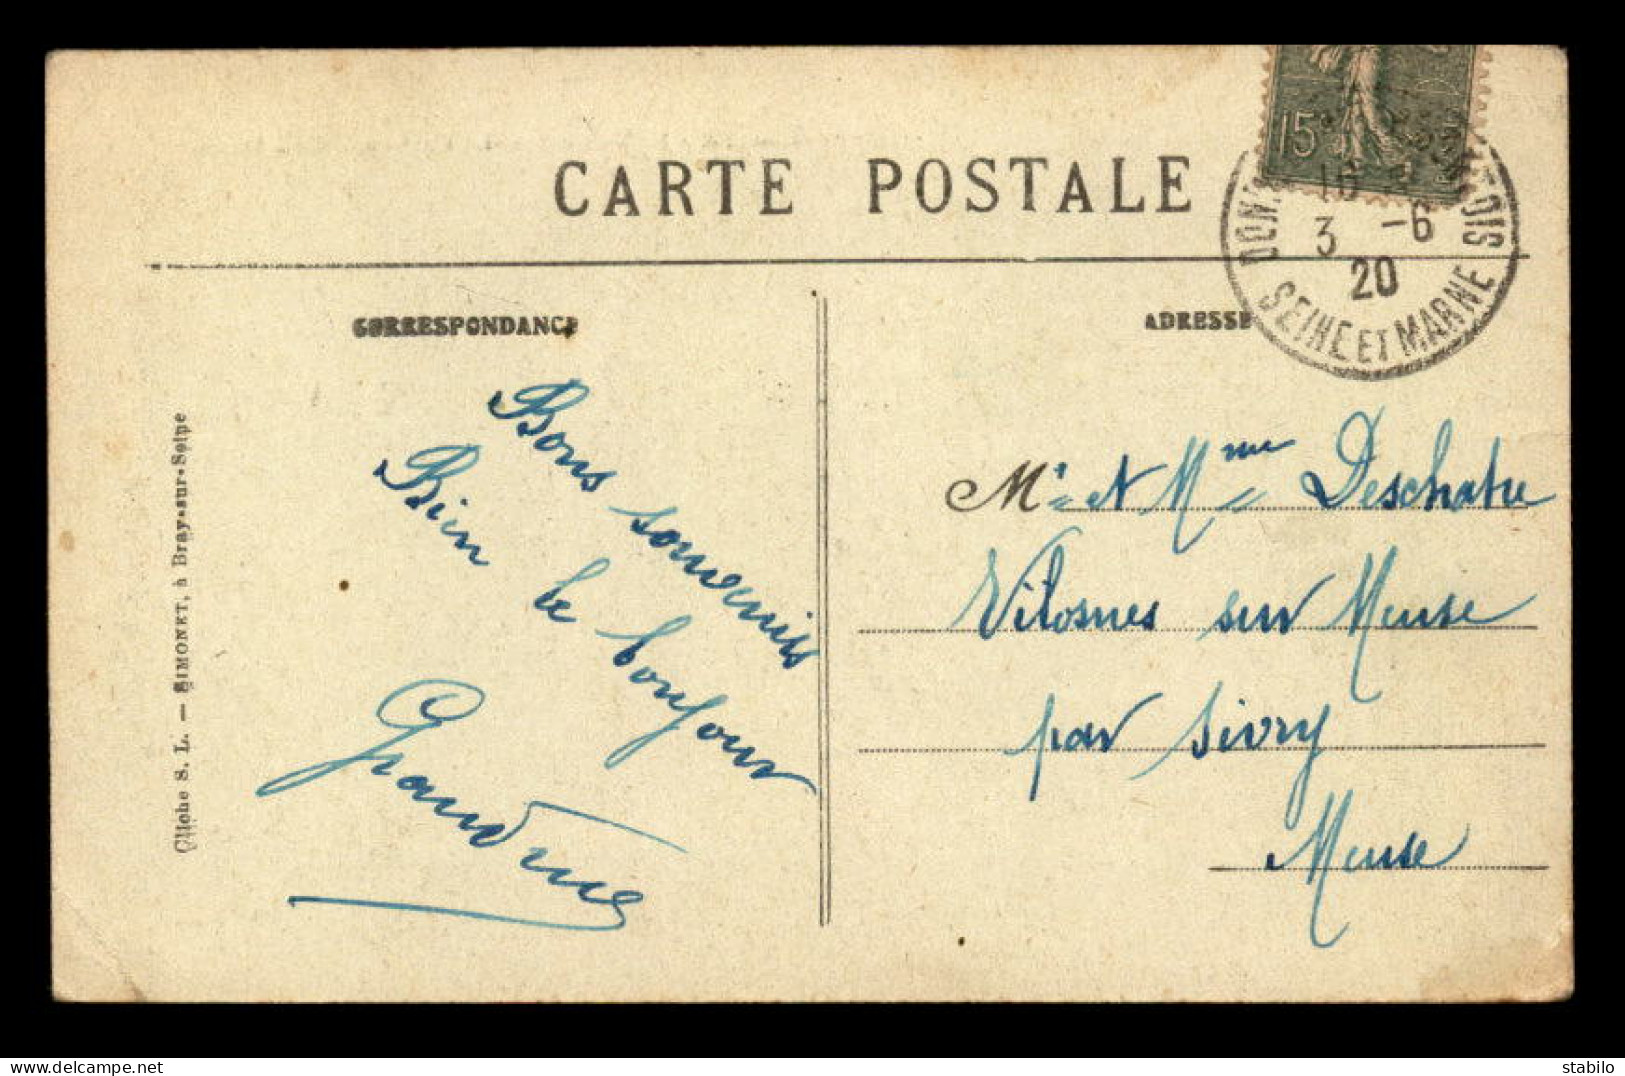 CARTE POSTALE
15
DONN TOIS
16
3 -6
20
SEINE ET MARNE
CORRESPONDANCE
ADRESSE
Bons souvenirs
Bien le bonjour
Cliché S. L. — SIMONET, à Bray-sur-Seine
Mr et Mme Deschatre
Vilosnes sur Meuse
par Sivry
Meuse
delcampe.net
stabilo